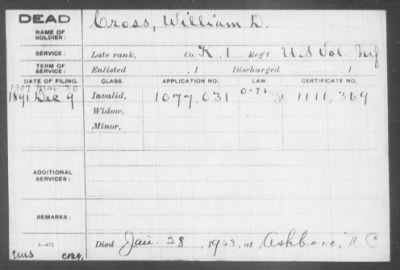 DEAD
NAME OF SOLDIER:
Cross, William D.
SERVICE:
Late rank, Co. K, 1 Reg't U.S. Vol. Inf
TERM OF SERVICE:
Enlisted , 1 Discharged , 1
DATE OF FILING. CLASS. APPLICATION NO. LAW. CERTIFICATE NO.
1891 Dec 9 Invalid, 1077,031 1111,369
Widow,
Minor,
ADDITIONAL SERVICES:
REMARKS:
Died Jan 28, 1923, at Ashboro, N.C.